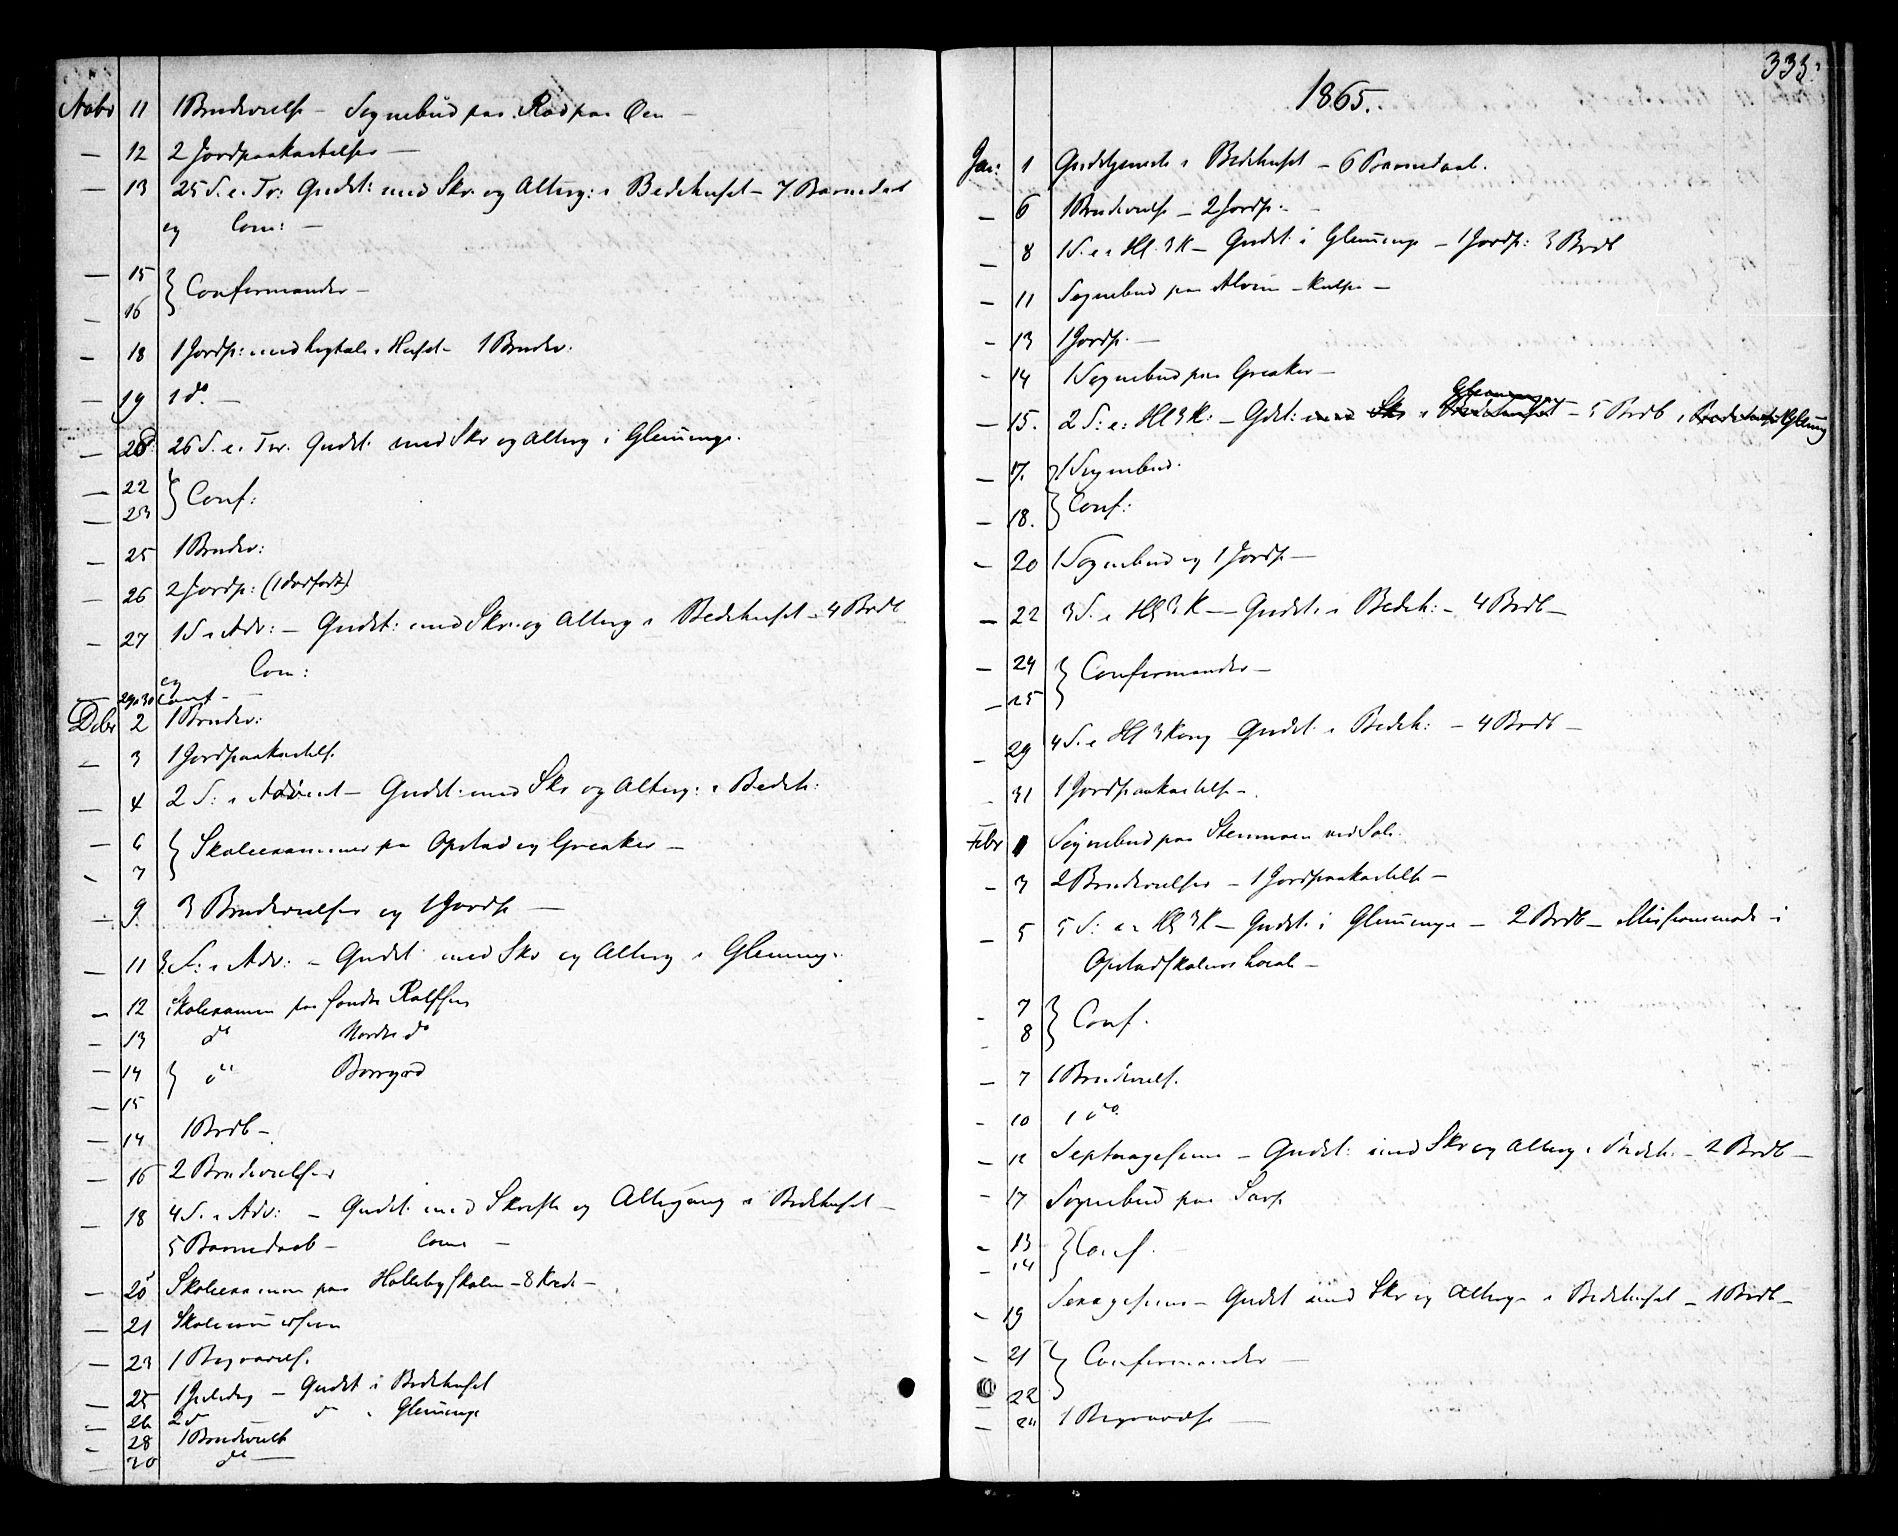 Novbr 11 1 Brudevielse – Sognebud paa Rød paa Øen –
– 12 2 Jordpaakastelser –
– 13 25 S. e. Tr: Gudst: med Skr. og Alterg: i Bedehuset – 7 Barnedaab
og Com: –
– 15
– 16 } Confirmander –
– 18 1 Jordp: med Ligtale i Huset – 1 Brudev:
– 19 1 do. –
– 20. 26 S. e. Tr. Gudst: med Skr og Alterg i Glemminge.
– 22
– 23 } Conf:
– 25 1 Brudev:
– 26 2 Jordp: (1 dødfødt)
– 27 1 S. i Adv: – Gudst: med Skr. og Alterg i Bedehuset – 4 Brdb
og Com:
– 29 30 Conf –
Dcbr 2 1 Brudev:
– 3 1 Jordpaakastelse.
– 4 2 S: i Advent – Gudst: med Skr og Alterg: i Bedeh:
– 6
– 7 } Skoleexamener paa Opstad og Greaker –
– 9. 3 Brudevielser og 1 Jordp –
– 11 3 S: i Adv: – Gudst: med Skr og Alterg i Glemminge.
– 12 Skolexamen paa Søndre Rolfsøen
– 13 do Nordre do
– 14
– 15 } do Borregaard
– 14 1 Brdb –
– 16 2 Brudevielser
– 18 4 S. i Adv: – Gudst: med Skrifte og Altergang i Bedehuset –
5 Barnedaab – Com –
– 20 Skolexamen paa Hallebyskolen – 8 Kreds –
– 21 Skolecommission
– 23 1 Begravels.
– 25 1 Juledag – Gudst i Bedehuset
– 26 2 d do i Glemminge
– 28 1 Brudevielse
– 30 do –
333.
1865.
Jan: 1 Gudstjeneste i Bedehuset – 6 Barnedaab.
– 6 1 Brudevielse – 2 Jordp. –
– 8 1 S. e. Hl. 3 K – Gudst: i Glemminge – 1 Jordp: 3 Brdb
– 11 Sognebud paa Alvim –
– 13 1 Jordp. –
– 14 1 Sognebud paa Greaker –
Glemminge
– 15. 2 S: e: Hl 3 K: – Gdst: med Skr i Bedehuset – 5 Brdb i Bedehuset Glemmg
– 17. 1 Sognebud.
– 18. } Conf:
– 20 1 Sognebud og 1 Jordp –
– 22 3 S. e Hl 3 K – Gudst. i Bedeh: – 4 Brdb –
– 24
– 25 } Confirmander –
– 29 4 S. e Hl 3 Kong Gudst. i Bedeh: – 4 Brdb –
– 31 1 Jordpaakastelse –
Febr 1 Sognebud paa ved Sole.
– 3 2 Brudevielser – 1 Jordpaakastelse –
– 5 5 S: e: Hl 3 K – Gudst. i Glemminge – 2 Brdb – Missionsmøde i
Opstadskolens Local –
– 7
– 8 } Conf.
– 7 1 Brudevielse.
– 10 1 do.
– 12 Septuagesima – Gudst: med Skr og Alterg i Bedeh. – 2 Brdb –
– 17 Sognebud paa Sarp
– 13
– 14 } Conf. –
– 19 Sexagesima – Gudst med Skr og Alterg i Bedehuset – 1 Brdb –
– 21
– 22 } Confirmander –
– 24 1 Begravelse –